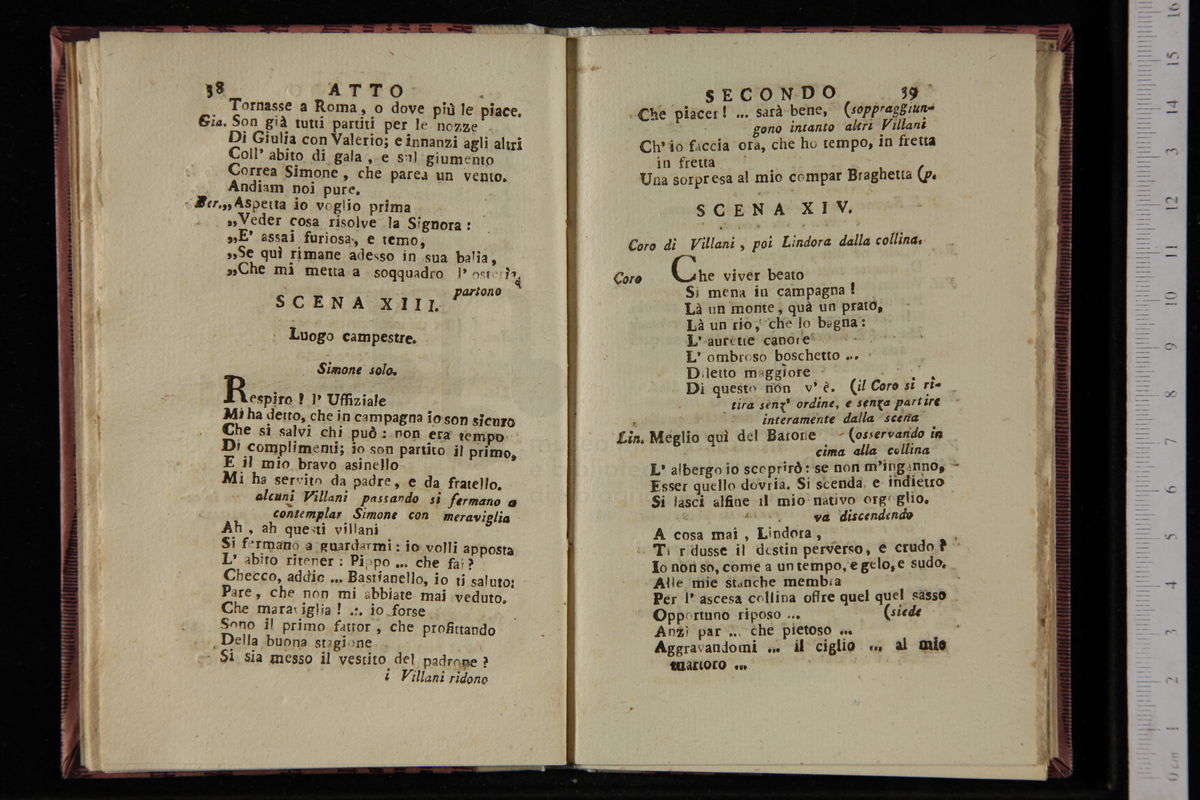 38 ATTO
Tornasse a Roma, o dove più le piace.
Gia. Son già tutti partiti per le nozze
Di Giulia con Valerio; e innanzi agli altri
Coll' abito di gala, e sul giumento
Correa Simone, che parea un vento.
Andiam noi pure.
Ber.,,Aspetta io voglio prima
,,Veder cosa risolve la Signora:
,,E' assai furiosa, e temo,
,,Se quì rimane adesso in sua balìa,
,,Che mi metta a soqquadro l' osterìa.
partono
SCENA XIII.
Luogo campestre.
Simone solo.
Respiro! l' Uffiziale
Mi ha detto, che in campagna io son sicuro
Che si salvi chi può: non era tempo
Di complimenti; io son partito il primo,
E il mio bravo asinello
Mi ha servito da padre, e da fratello.
alcuni Villani passando si fermano a
contemplar Simone con meraviglia
Ah, ah questi villani
Si fermano a guardarmi: io volli apposta
L' abito ritener: Pippo ... che fai?
Checco, addio ... Bastianello, io ti saluto:
Pare, che non mi abbiate mai veduto.
Che maraviglia! ... io forse
Sono il primo fattor, che profittando
Della buona stagione
Si sia messo il vestito del padrone?
i Villani ridono
SECONDO 39
Che piacer! ... sarà bene, (soppraggiun-
gono intanto altri Villani
Ch' io faccia ora, che ho tempo, in fretta
in fretta
Una sorpresa al mio compar Braghetta (p.
SCENA XIV.
Coro di Villani, poi Lindora dalla collina.
Coro Che viver beato
Si mena in campagna!
Là un monte, quà un prato,
Là un rio, che lo bagna:
L' aurette canore
L' ombroso boschetto ...
Diletto maggiore
Di questo non v' è. (il Coro si ri-
tira senz' ordine, e senza partire
interamente dalla scena
Lin. Meglio quì del Barone (osservando in
cima alla collina
L' albergo io scoprirò: se non m'inganno,
Esser quello dovria. Si scenda, e indietro
Si lasci alfine il mio nativo orgoglio.
va discendendo
A cosa mai, Lindora,
Ti ridusse il destin perverso, e crudo?
Io non so, come a un tempo, e gelo, e sudo.
Alle mie stanche membra
Per l' ascesa collina offre quel quel sasso
Opportuno riposo ... (siede
Anzi par ... che pietoso ...
Aggravandomi ... il ciglio ... al mio
martoro ...